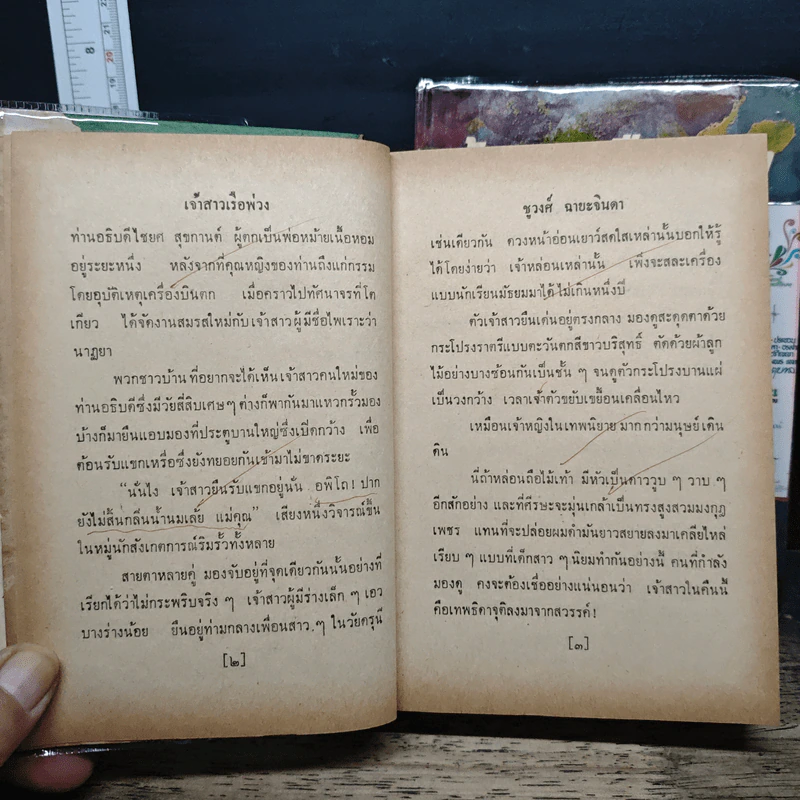 เจ้าสาวเรือพ่วง
ท่านอธิบดีไชยศ สุขกานต์ ผู้ตกเป็นพ่อหม้ายเนื้อหอม
อยู่ระยะหนึ่ง หลังจากที่คุณหญิงของท่านถึงแก่กรรม
โดยอุบัติเหตุเครื่องบินตก เมื่อคราวไปทัศนาจรที่โต
เกียว ได้จัดงานสมรสใหม่กับเจ้าสาวผู้มีชื่อไพเราะว่า
นาฏยา
พวกชาวบ้านที่อยากจะได้เห็นเจ้าสาวคนใหม่ของ
ท่านอธิบดีซึ่งมีวัยสี่สิบเศษๆ ต่างก็พากันมาแหวกรั้วมอง
บ้างก็มายืนแอบมองที่ประตูบานใหญ่ซึ่งเปิดกว้าง เพื่อ
ต้อนรับแขกเหรื่อซึ่งยังทยอยกันเข้ามาไม่ขาดระยะ
“นั่นไง เจ้าสาวยืนรับแขกอยู่นั่น อพิโถ! ปาก
ยังไม่สิ้นกลิ่นน้ำนมเลย แม่คุณ” เสียงหนึ่งวิจารณ์ขึ้น
ในหมู่นักสังเกตการณ์ริมรั้วทั้งหลาย
สายตาหลายคู่ มองจับอยู่ที่จุดเดียวกันนั้นอย่างที่
เรียกได้ว่าไม่กระพริบจริง ๆ เจ้าสาวผู้มีร่างเล็ก ๆ เอว
บางร่างน้อย ยืนอยู่ท่ามกลางเพื่อนสาว ๆ ในวัยดรุณี
[๒]
ชูวงศ์ ฉายะจินดา
เช่นเดียวกัน ดวงหน้าอ่อนเยาว์สดใสเหล่านั้นบอกให้รู้
ได้โดยง่ายว่า เจ้าหล่อนเหล่านั้น เพิ่งจะสละเครื่อง
แบบนักเรียนมัธยมมาได้ไม่เกินหนึ่งปี
ตัวเจ้าสาวยืนเด่นอยู่ตรงกลาง มองดูสะดุดตาด้วย
กระโปรงราตรีแบบตะวันตกสีขาวบริสุทธิ์ ตัดด้วยผ้าลูก
ไม้อย่างบางซ้อนกันเป็นชั้น ๆ จนดูตัวกระโปรงบานแผ่
เป็นวงกว้าง เวลาเจ้าตัวขยับเขยื้อนเคลื่อนไหว
เหมือนเจ้าหญิงในเทพนิยาย มากกว่ามนุษย์เดิน
ดิน
นี่ถ้าหล่อนถือไม้เท้า มีหัวเป็นดาววูบ ๆ วาบ ๆ
อีกสักอย่าง และที่ศีรษะจะมุ่นเกล้าเป็นทรงสูงสวมมงกุฎ
เพชร แทนที่จะปล่อยผมดำมันยาวสยายลงมาเคลียไหล่
เรียบ ๆ แบบที่เด็กสาว ๆ นิยมทำกันอย่างนี้ คนที่กำลัง
มองดู คงจะต้องเชื่ออย่างแน่นอนว่า เจ้าสาวในคืนนี้
คือเทพธิดาจุติลงมาจากสวรรค์!
[๓]